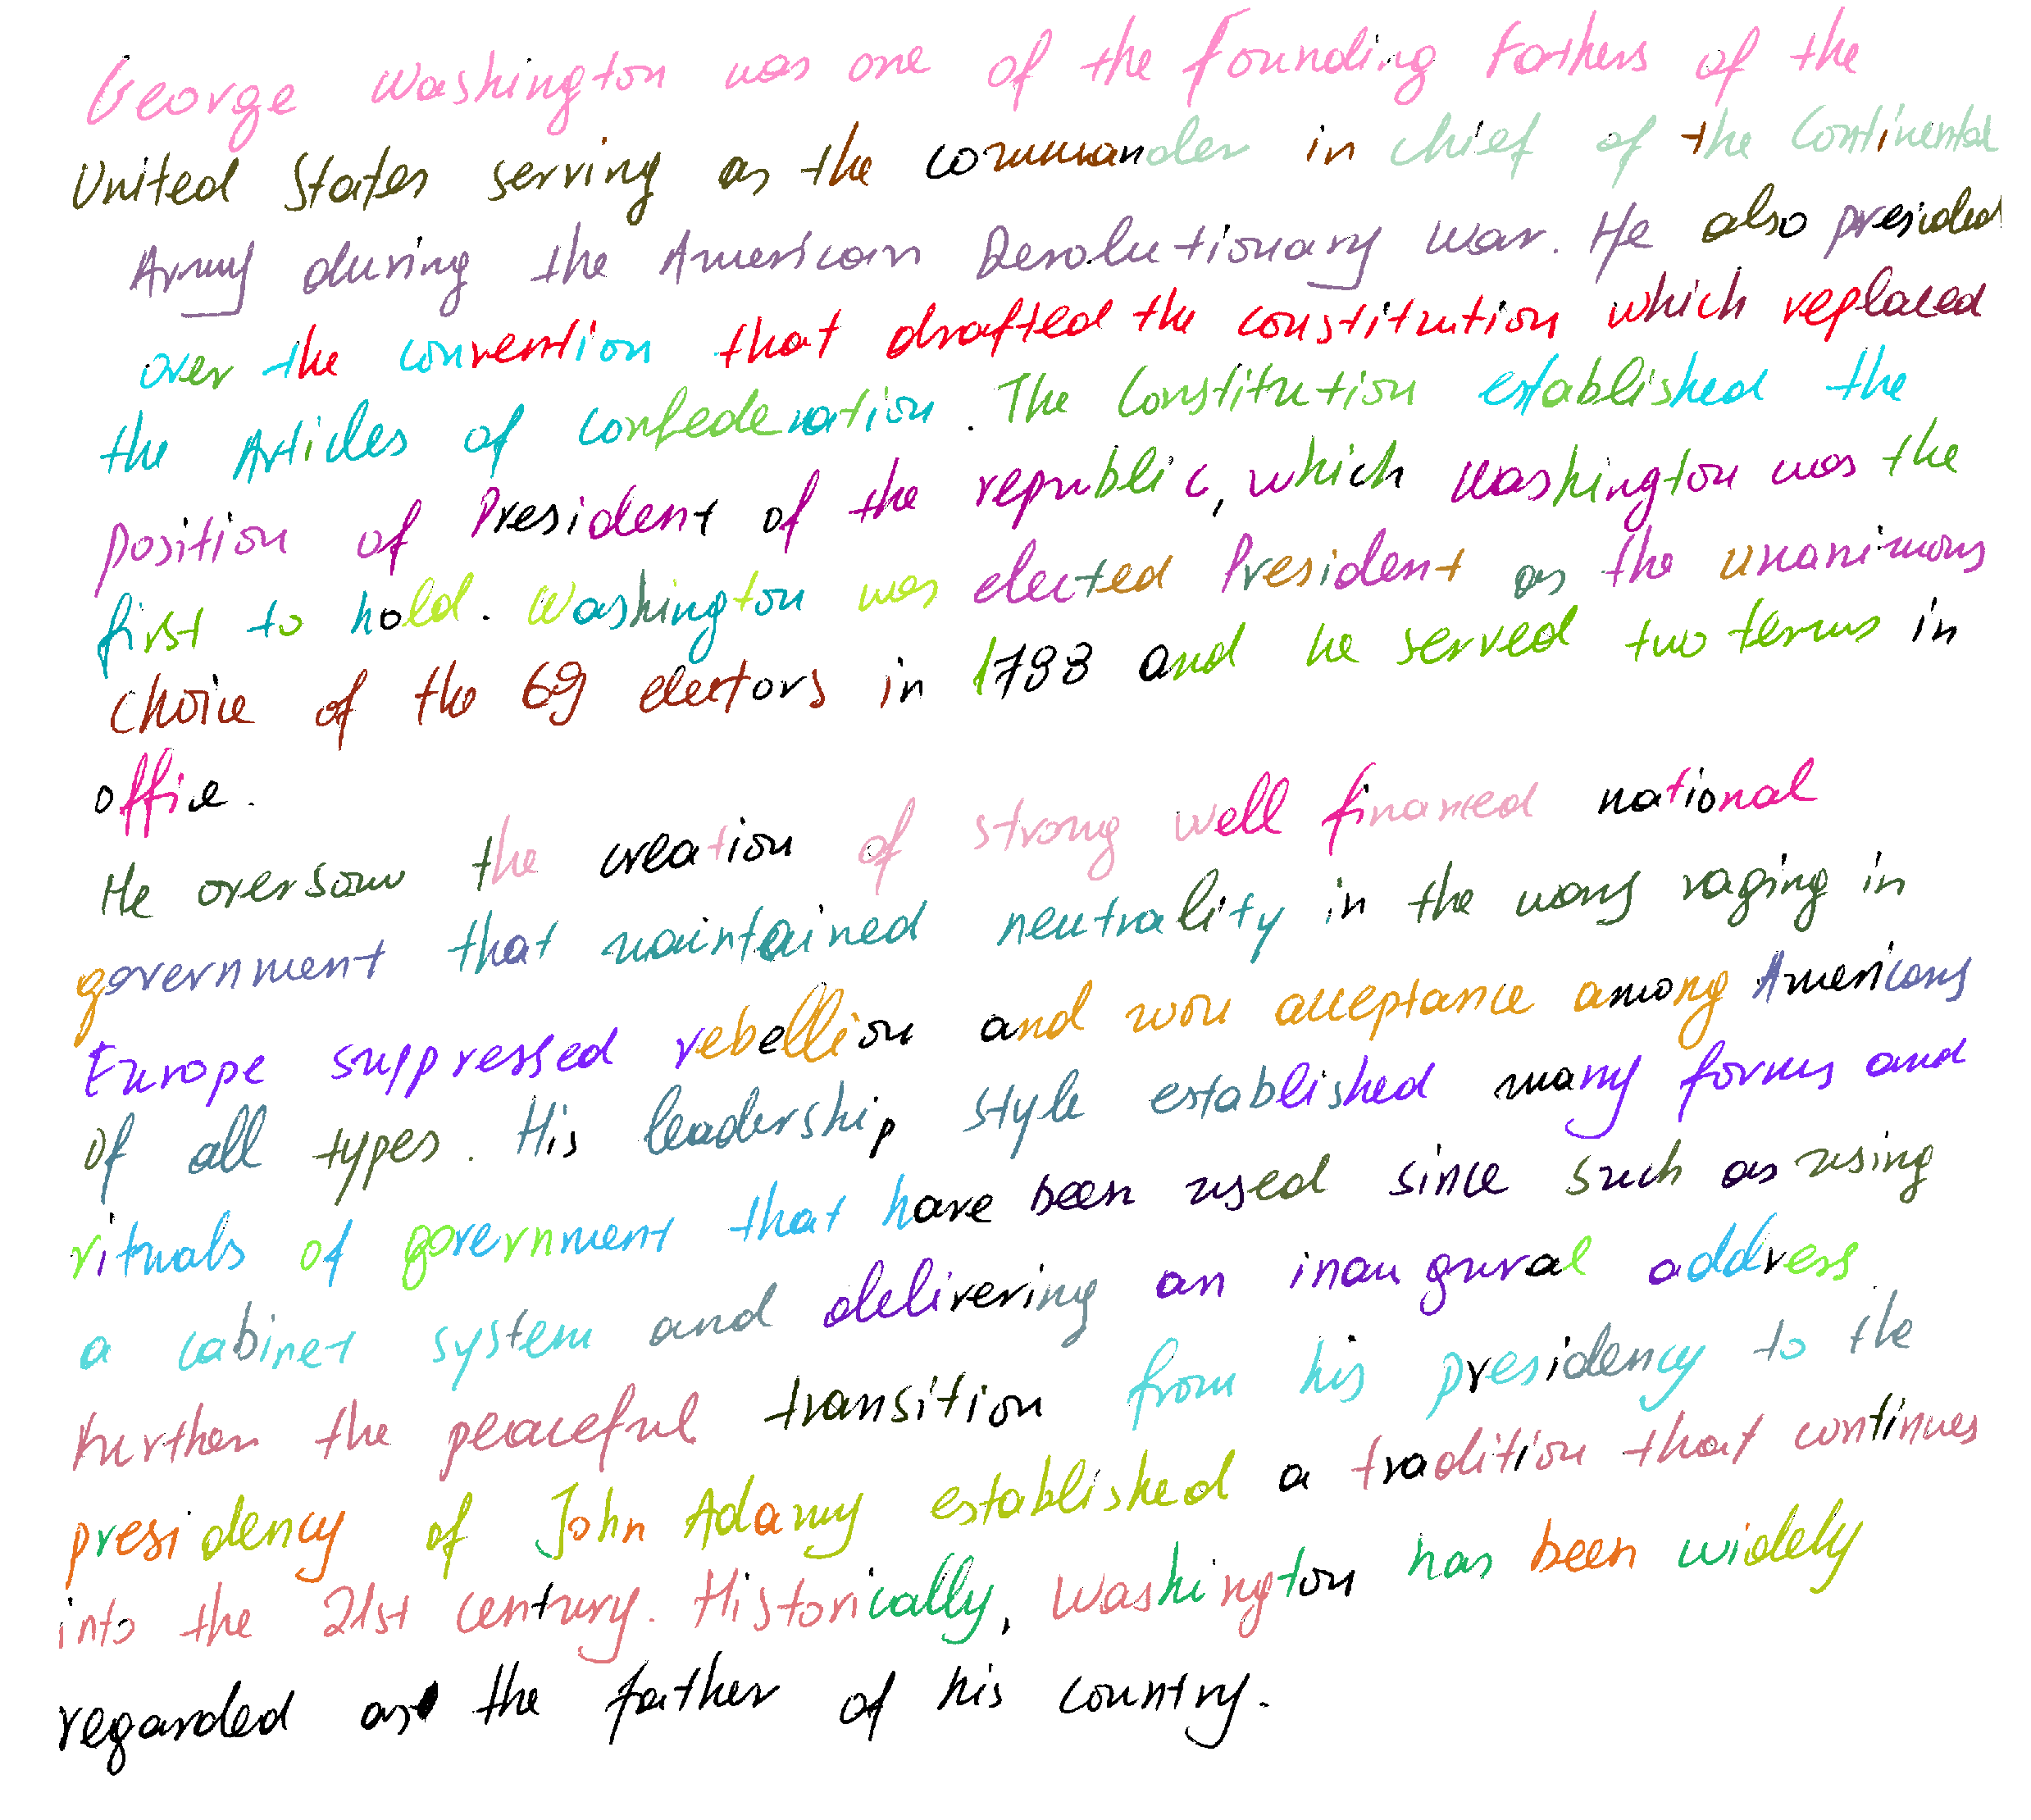 George Washington was one of the Founding Fathers of the
United States serving as the commander in chief of the Continental
Army during the American Revolutionary War. He also presided
over the convention that drafted the constitution which replaced
the Articles of Confederation. The Constitution established the
position of President of the republic, which Washington was the
first to hold. Washington was elected President as the unanimous
choice of the 69 electors in 1788 and he served two terms in
office.
He oversaw the creation of strong well financed national
government that maintained neutrality in the wars raging in
Europe suppressed rebellion and won acceptance among Americans
of all types. His leadership style established many forms and
rituals of government that have been used since such as using
a cabinet system and delivering an inaugural address.
Further the peaceful transition from his presidency to the
presidency of John Adams established a tradition that continues
into the 21st century. Historically, Washington has been widely
regarded as the father of his country.